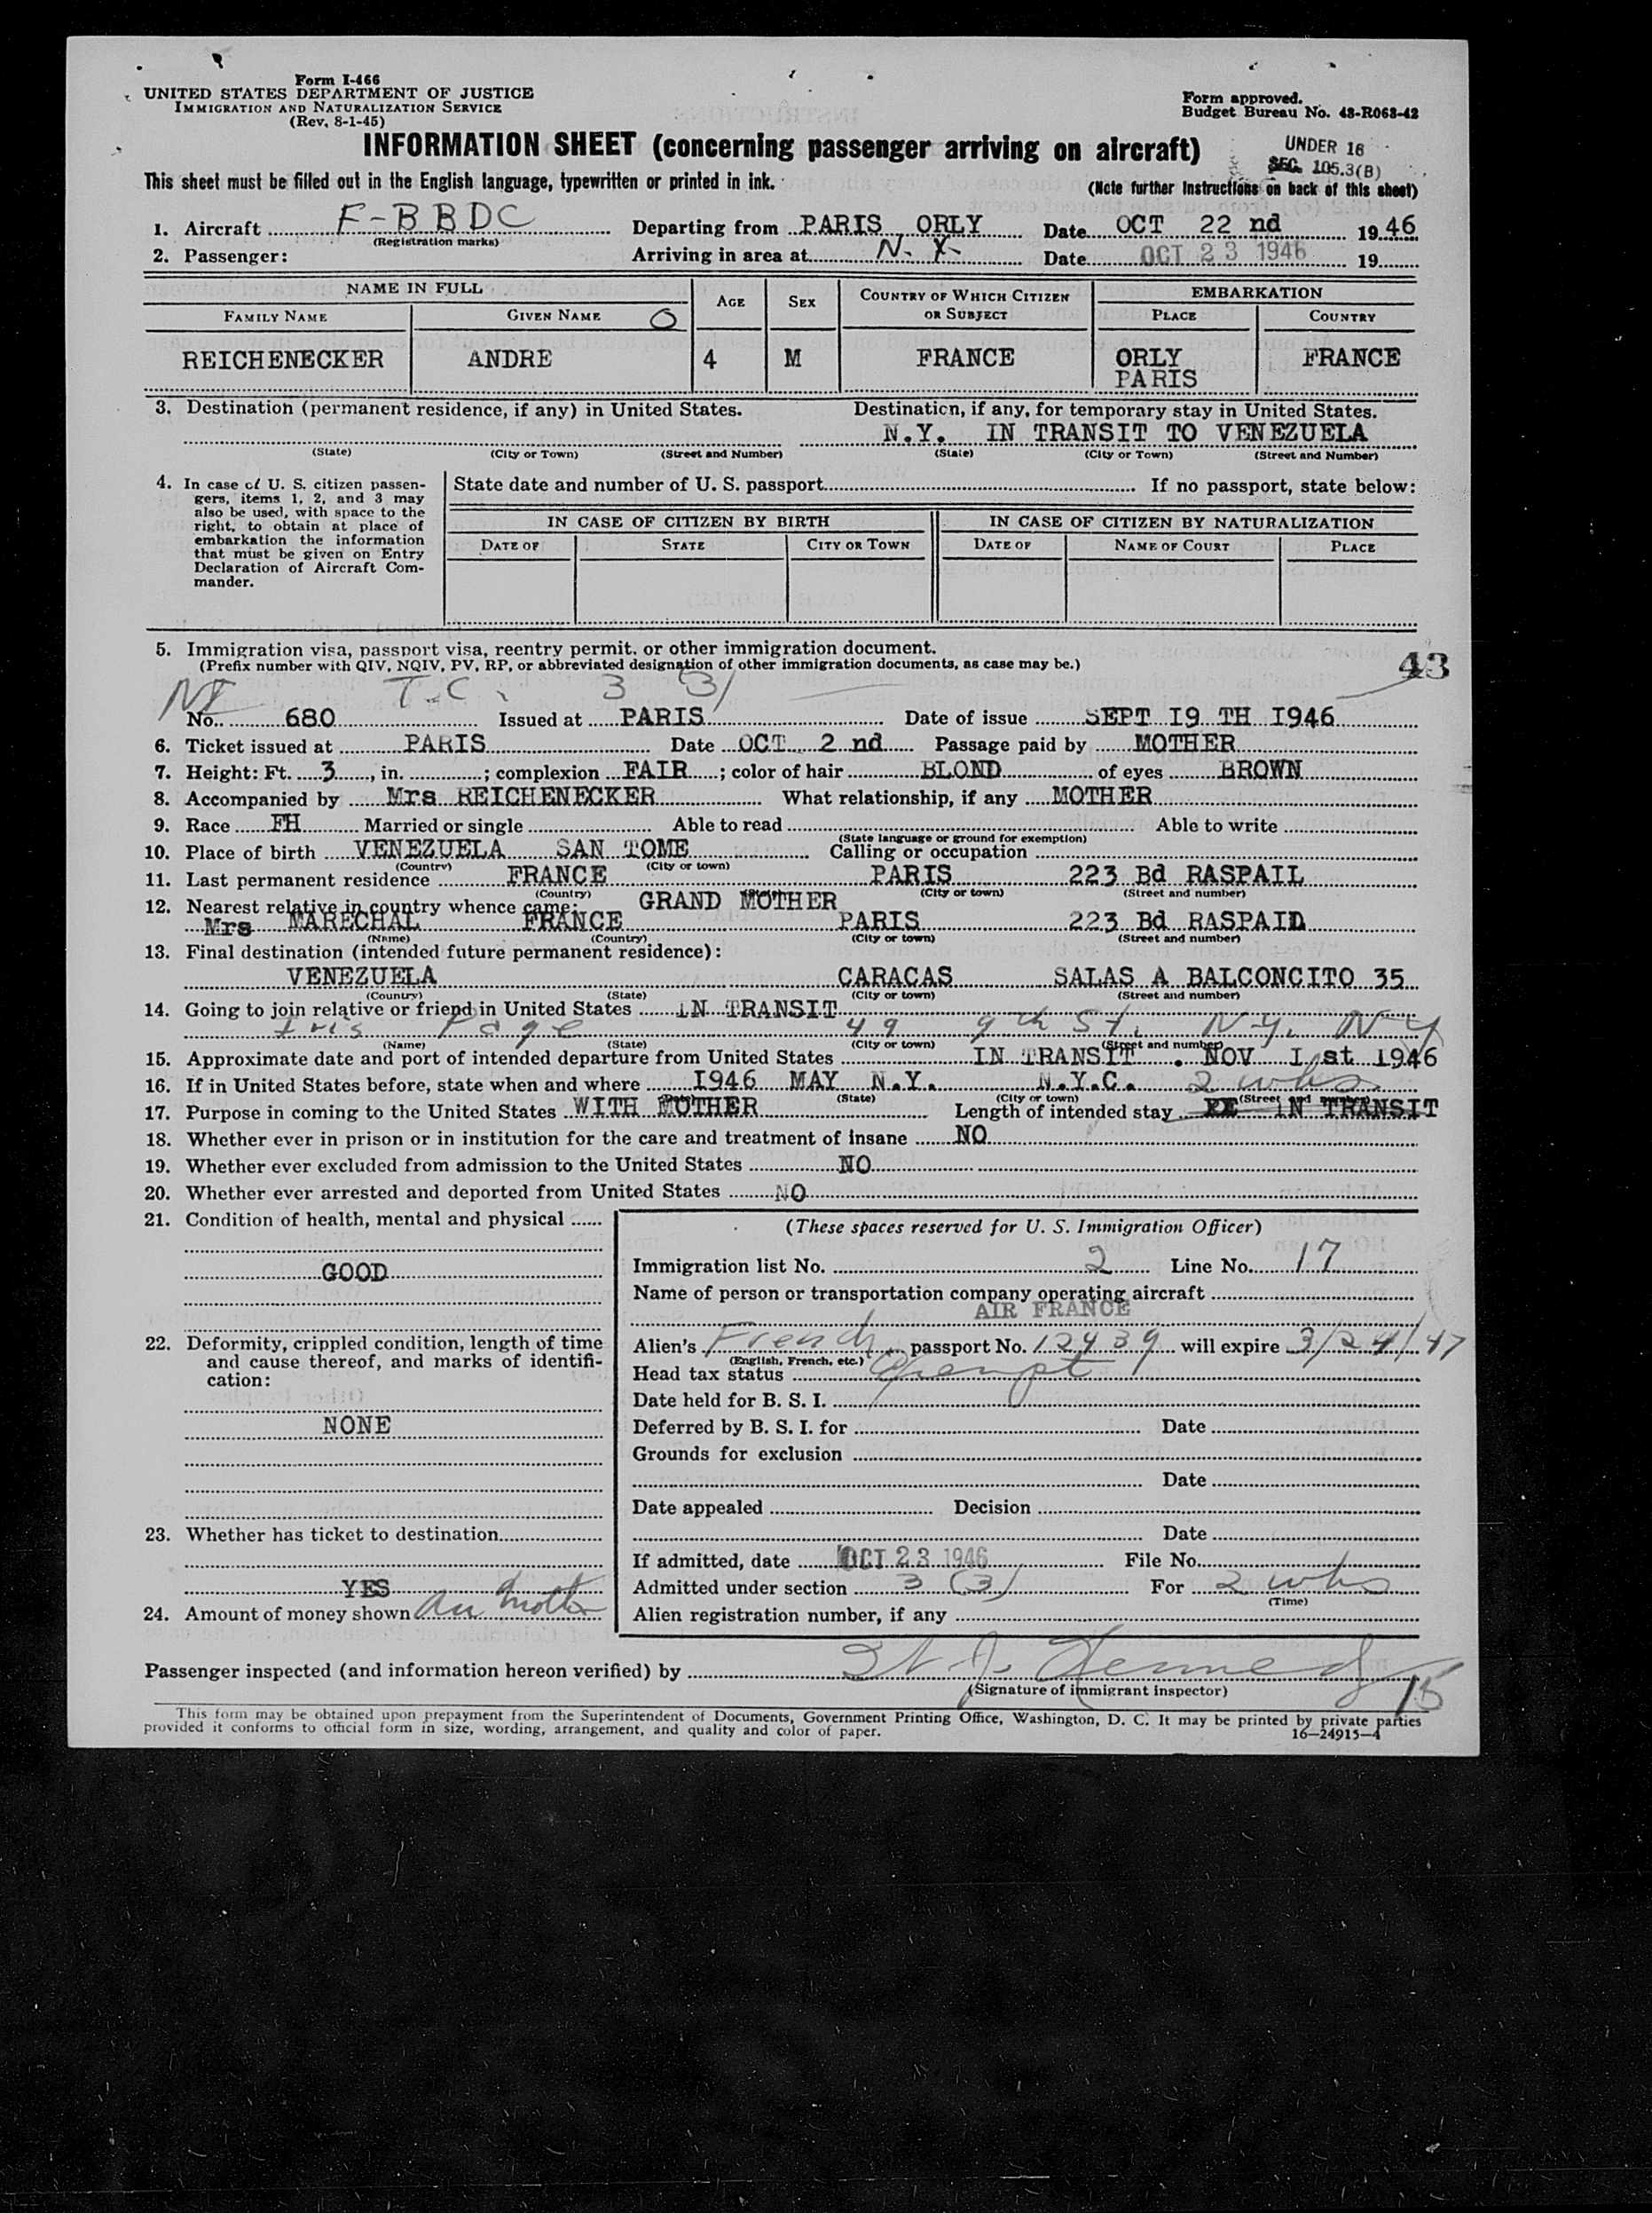 Form I-466
UNITED STATES DEPARTMENT OF JUSTICE
IMMIGRATION AND NATURALIZATION SERVICE
(Rev. 8-1-45)
Form approved.
Budget Bureau No. 43-R068-42
INFORMATION SHEET (concerning passenger arriving on aircraft)
UNDER 16
SEC. 105.3(B)
This sheet must be filled out in the English language, typewritten or printed in ink.
(Note further Instructions on back of this sheet)
1. Aircraft F-BBDC Departing from PARIS ORLY Date OCT 22 nd 1946
(Registration marks)
2. Passenger: Arriving in area at N.Y. Date OCT 23 1946 19
NAME IN FULL AGE SEX COUNTRY OF WHICH CITIZEN OR SUBJECT EMBARKATION
FAMILY NAME GIVEN NAME O PLACE COUNTRY
REICHENECKER ANDRE 4 M FRANCE ORLY PARIS FRANCE
3. Destination (permanent residence, if any) in United States. Destination, if any, for temporary stay in United States.
N.Y. IN TRANSIT TO VENEZUELA
(State) (City or Town) (Street and Number) (State) (City or Town) (Street and Number)
4. In case of U. S. citizen passen-
gers, items 1, 2, and 3 may
also be used, with space to the
right, to obtain at place of
embarkation the information
that must be given on Entry
Declaration of Aircraft Com-
mander.
State date and number of U. S. passport If no passport, state below:
IN CASE OF CITIZEN BY BIRTH IN CASE OF CITIZEN BY NATURALIZATION
DATE OF STATE CITY OR TOWN DATE OF NAME OF COURT PLACE
5. Immigration visa, passport visa, reentry permit, or other immigration document.
(Prefix number with QIV, NQIV, PV, RP, or abbreviated designation of other immigration documents, as case may be.)
43
T.C. 3 (3)
No. 680 Issued at PARIS Date of issue SEPT I9 TH I946
6. Ticket issued at PARIS Date OCT 2 nd Passage paid by MOTHER
7. Height: Ft. 3, in. ; complexion FAIR; color of hair BLOND of eyes BROWN
8. Accompanied by Mrs REICHENECKER What relationship, if any MOTHER
9. Race FH Married or single Able to read Able to write
(State language or ground for exemption)
10. Place of birth VENEZUELA SAN TOME Calling or occupation
(Country) (City or town)
11. Last permanent residence FRANCE PARIS 223 Bd RASPAIL
(Country) (State) (City or town) (Street and number)
12. Nearest relative in country whence came: GRAND MOTHER
Mrs MARECHAL FRANCE PARIS 223 Bd RASPAID
(Name) (Country) (City or town) (Street and number)
13. Final destination (intended future permanent residence):
VENEZUELA CARACAS SALAS A BALCONCITO 35
(Country) (State) (City or town) (Street and number)
14. Going to join relative or friend in United States IN TRANSIT
Page 49 9th St. N.Y. N.Y
(Name) (State) (City or town) (Street and number)
15. Approximate date and port of intended departure from United States IN TRANSIT . NOV I st 1946
16. If in United States before, state when and where I946 MAY N.Y. N.Y.C. 2 wks
(State) (City or town) (Street and number)
17. Purpose in coming to the United States WITH MOTHER Length of intended stay IN TRANSIT
18. Whether ever in prison or in institution for the care and treatment of insane NO
19. Whether ever excluded from admission to the United States NO
20. Whether ever arrested and deported from United States NO
21. Condition of health, mental and physical
GOOD
22. Deformity, crippled condition, length of time
and cause thereof, and marks of identifi-
cation:
NONE
23. Whether has ticket to destination
YES
24. Amount of money shown
(These spaces reserved for U. S. Immigration Officer)
Immigration list No. 2 Line No. 17
Name of person or transportation company operating aircraft
AIR FRANCE
Alien's French passport No. 12439 will expire 3/24/47
(English, French, etc.)
Head tax status Exempt
Date held for B. S. I.
Deferred by B. S. I. for Date
Grounds for exclusion
Date
Date appealed Decision
Date
If admitted, date OCT 23 1946 File No.
Admitted under section 3 (3) For 2 wks
(Time)
Alien registration number, if any
Passenger inspected (and information hereon verified) by Kennedy
(Signature of immigrant inspector)
15
This form may be obtained upon prepayment from the Superintendent of Documents, Government Printing Office, Washington, D. C. It may be printed by private parties
provided it conforms to official form in size, wording, arrangement, and quality and color of paper.
16—24915-4